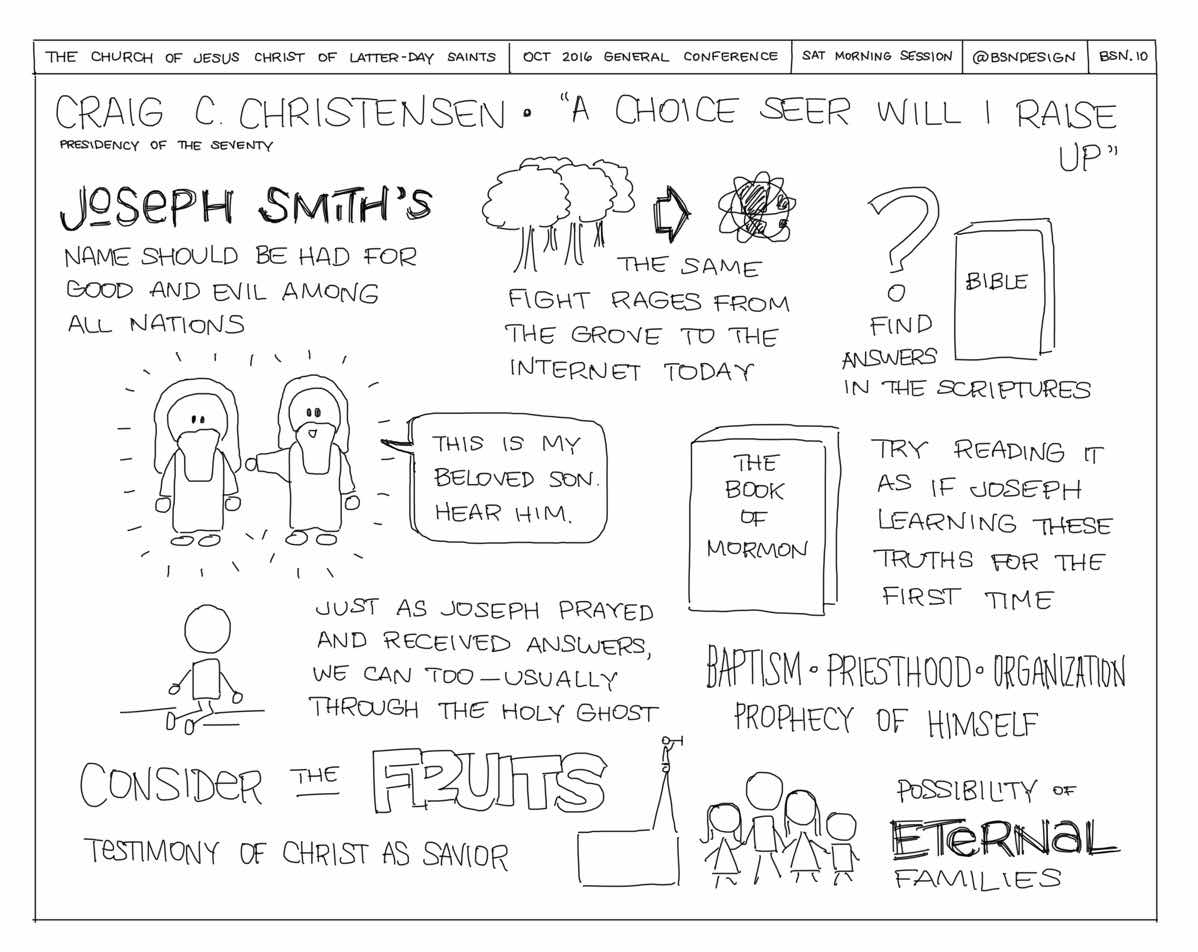 THE CHURCH OF JESUS CHRIST OF LATTER-DAY SAINTS
OCT 2016 GENERAL CONFERENCE
SAT MORNING SESSION
@BSNDESIGN
BSN.10
CRAIG C. CHRISTENSEN • "A CHOICE SEER WILL I RAISE
UP"
PRESIDENCY OF THE SEVENTY
JOSEPH SMITH'S
NAME SHOULD BE HAD FOR
GOOD AND EVIL AMONG
ALL NATIONS
THE SAME
FIGHT RAGES FROM
THE GROVE TO THE
INTERNET TODAY
?
BIBLE
FIND
ANSWERS
IN THE SCRIPTURES
THIS IS MY
BELOVED SON.
HEAR HIM.
THE
BOOK
OF
MORMON
TRY READING IT
AS IF JOSEPH
LEARNING THESE
TRUTHS FOR THE
FIRST TIME
JUST AS JOSEPH PRAYED
AND RECEIVED ANSWERS,
WE CAN TOO—USUALLY
THROUGH THE HOLY GHOST
BAPTISM • PRIESTHOOD • ORGANIZATION
PROPHECY OF HIMSELF
CONSIDER THE FRUITS
TESTIMONY OF CHRIST AS SAVIOR
POSSIBILITY OF
ETERNAL
FAMILIES